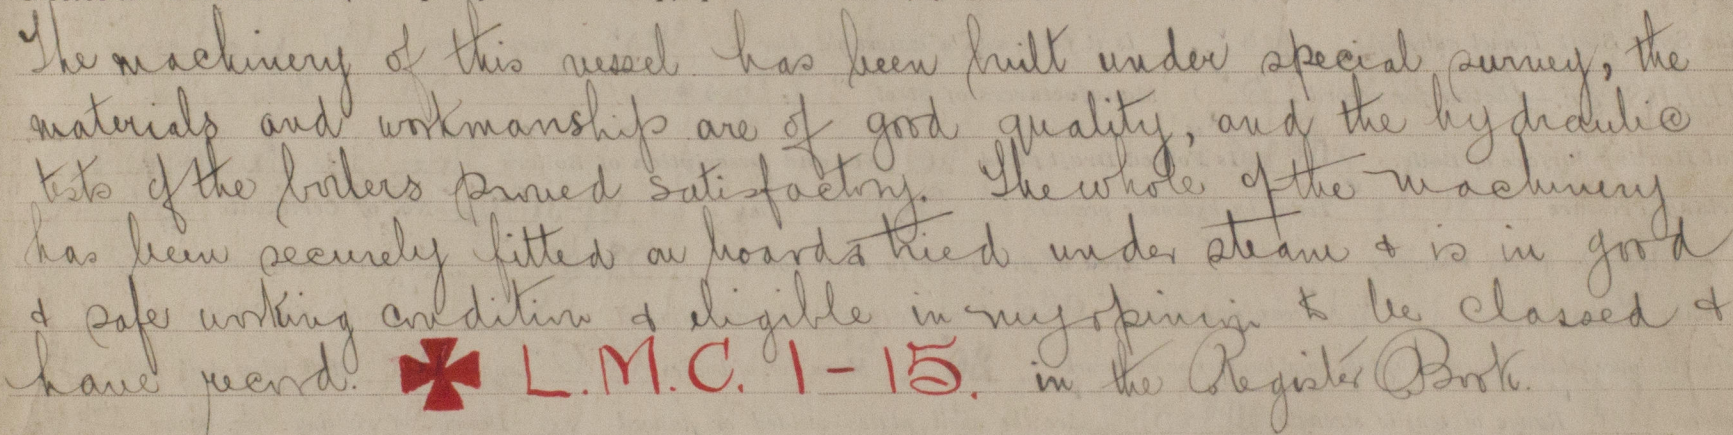 The machinery of this vessel has been built under special survey, the
materials and workmanship are of good quality, and the hydraulic
tests of the boilers proved satisfactory. The whole of the machinery
has been securely fitted on board & tried under steam & is in good
& safe working condition & eligible in my opinion to be classed &
have record. ✠ L.M.C. 1-15. in the Register Book.